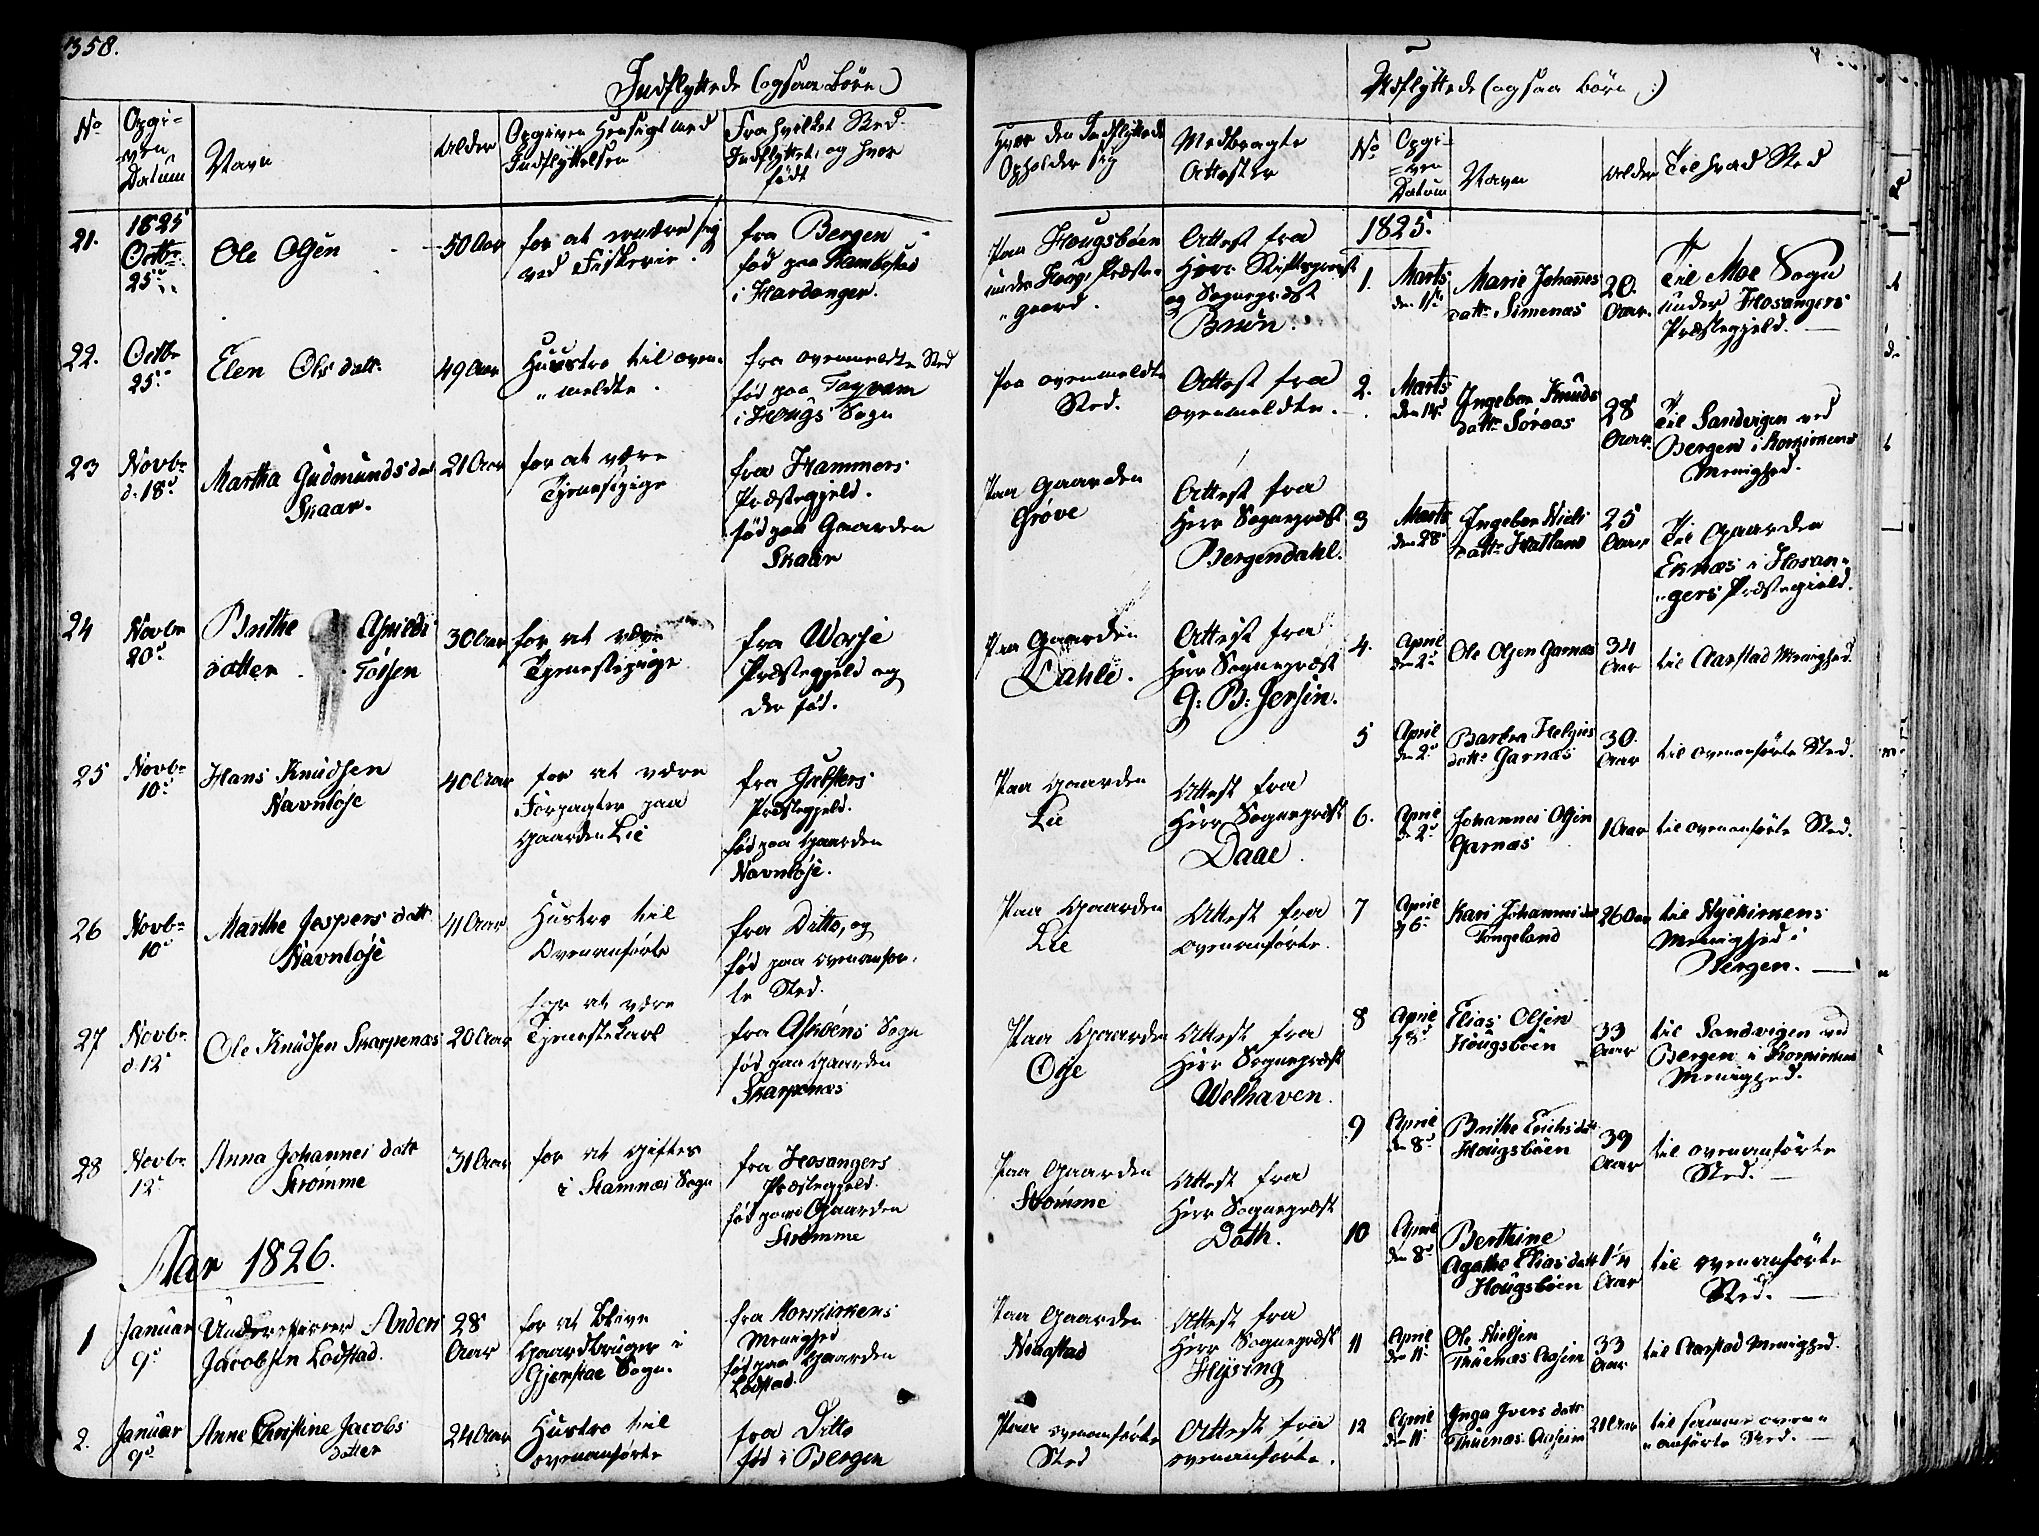 358.
Indflyttede (ogsaa Børn)
No
Opgi-
ven
Datum
Navn
Alder
Opgiven Hensigt med
Indflyttelsen
Fra hvilket Sted
Indflyttet, og hvor
født
Hvor den Indflyttede
Opholder sig
Medbragte
Attester
21.
1825
Octbr
25de
Ole Olsen
50 Aar
for at nære sig
ved Fiskerie.
fra Bergen
fød paa
i Hardanger.
Paa Hougsbøen
under Houg Præste-
gaard.
Attest fra
Herr Stiftsprovst
og Sognepræst
Bruun.
22.
Octbr
25de
Elen Olsdatt.
49 Aar
Huustro til oven-
meldte.
fra ovenmeldte Sted
fød paa
i Hougs Sogn
Paa ovenmeldte
Sted.
Attest fra
ovenmeldte.
23
Novbr
d. 18d
Martha Gudmundsdat
Skaar.
21 Aar
for at være
Tjenestpige
fra Hammers
Præstegjeld.
fød paa Gaarden
Skaar
Paa Gaarden
Grøve
Attest fra
Herr Sognepræst
Bergendahl.
24
Novbr
20d
Brithe
datter Tossen
30 Aar
for at være
Tjenestepige
fra Worse
Præstegjeld og
der fød.
Paa Gaarden
Dahle.
Attest fra
Herr Sognepræst
G: B: Jersin.
25
Novbr
10d
Hans Knudsen
Navnløse
40 Aar
for at være
Forpagter paa
Gaarden Lie
fra
Præstegjeld.
fød paa Gaarden
Navnløse.
Paa Gaarden
Lie
Attest fra
Herr Sognepræst
Daae.
26
Novbr
10d
Marthe Jespersdatt
Navnløse
41 Aar
Hustro til
Ovenanførte
fra Ditto, og
fød paa ovenanfør-
te Sted.
Paa Gaarden
Lie
Attest fra
ovenanførte.
27
Novbr
d. 12
Ole Knudsen Skarpenæs
20 Aar
for at være
Tjenestekarl
fra Askøens Sogn
fød paa Gaarden
Skarpenæs
Paa Gaarden
Attest fra
Herr Sognepræst
Welhaven.
28
Novbr
12
Anna Johannesdatt
Strømme
31 Aar
for at giftes
i Stamnæs Sogn
fra Hosangers
Præstegjeld.
fød paa Gaarden
Strømme
Paa Gaarden
Strømme
Attest fra
Herr Sognepræst
Dath.
Aar 1826.
1
Januar
9d
Underofficer Anders
Jacobsen Lodstad.
28
Aar
for at blive
Gaardbruger i
Gjerstad Sogn.
fra Korskirkens
Menighed
fød paa Gaarden
Lodstad.
Paa Gaarden
Attest fra
Herr Sognepræst
Hysing
2.
Januar
9d
Anne Christine Jacobs
datter
24 Aar
Hustro til
ovenanførte
fra Ditto
fød i Bergen
Paa ovenanførte
Sted
Attest fra
ovenanførte.
Udflyttede (ogsaa Børn:)
No
Opgi-
ven
Datum
Navn
Alder
Til hvad Sted
1825.
1.
Marts
den 1ste
Marie Johannes
datt. Simenæs
20.
Aar.
Til Moe Sogn
under Hosangers
Præstegjeld.
2.
Marts
Ingebor Knuds
datt. Søraas
28
Aar.
Til Sandvigen ved
Bergen i Korskirkens
Menighed.
3
Marts
den 28
Ingebor Niels
datt. Hatland
25
Aar
Til Gaarden
Eknæs i Hosan-
gers Præstegjeld.
4.
April
den 2d
Ole Olsen Garnæs
34
Aar
til Aarstad Menighed.
5
April
den 2d
Barbra Helgies
datt. Garnæs
30.
Aar
til ovenanførte Sted.
6.
April
den 2d
Johannes Olsen
Garnæs
1 Aar
til ovenanførte Sted.
7
April
d 6
Kari Johannesdat
Tongeland
26 Aar
til Nykirkens
Menighed i
Bergen.
8
April
d 8
Elias Olsen
Hougsbøen
33
Aar
til Sandvigen ved
Bergen i Korskirkens
Menighed.
9
April
den 8d
Brithe Erichsdatt
Hougsbøen
39
Aar
til ovenanførte
Sted.
10
April
den 8d
Berthine
Agathe Eliasdatt
Hougsbøen
1¼
Aar
til ovenanførte
Sted.
11
April
den 11
Ole Nielsen
33
Aar
til Aarstad Menighed.
12
April
den 11
Inga Iversdatt
21 Aar
til samme oven-
anførte Sted.